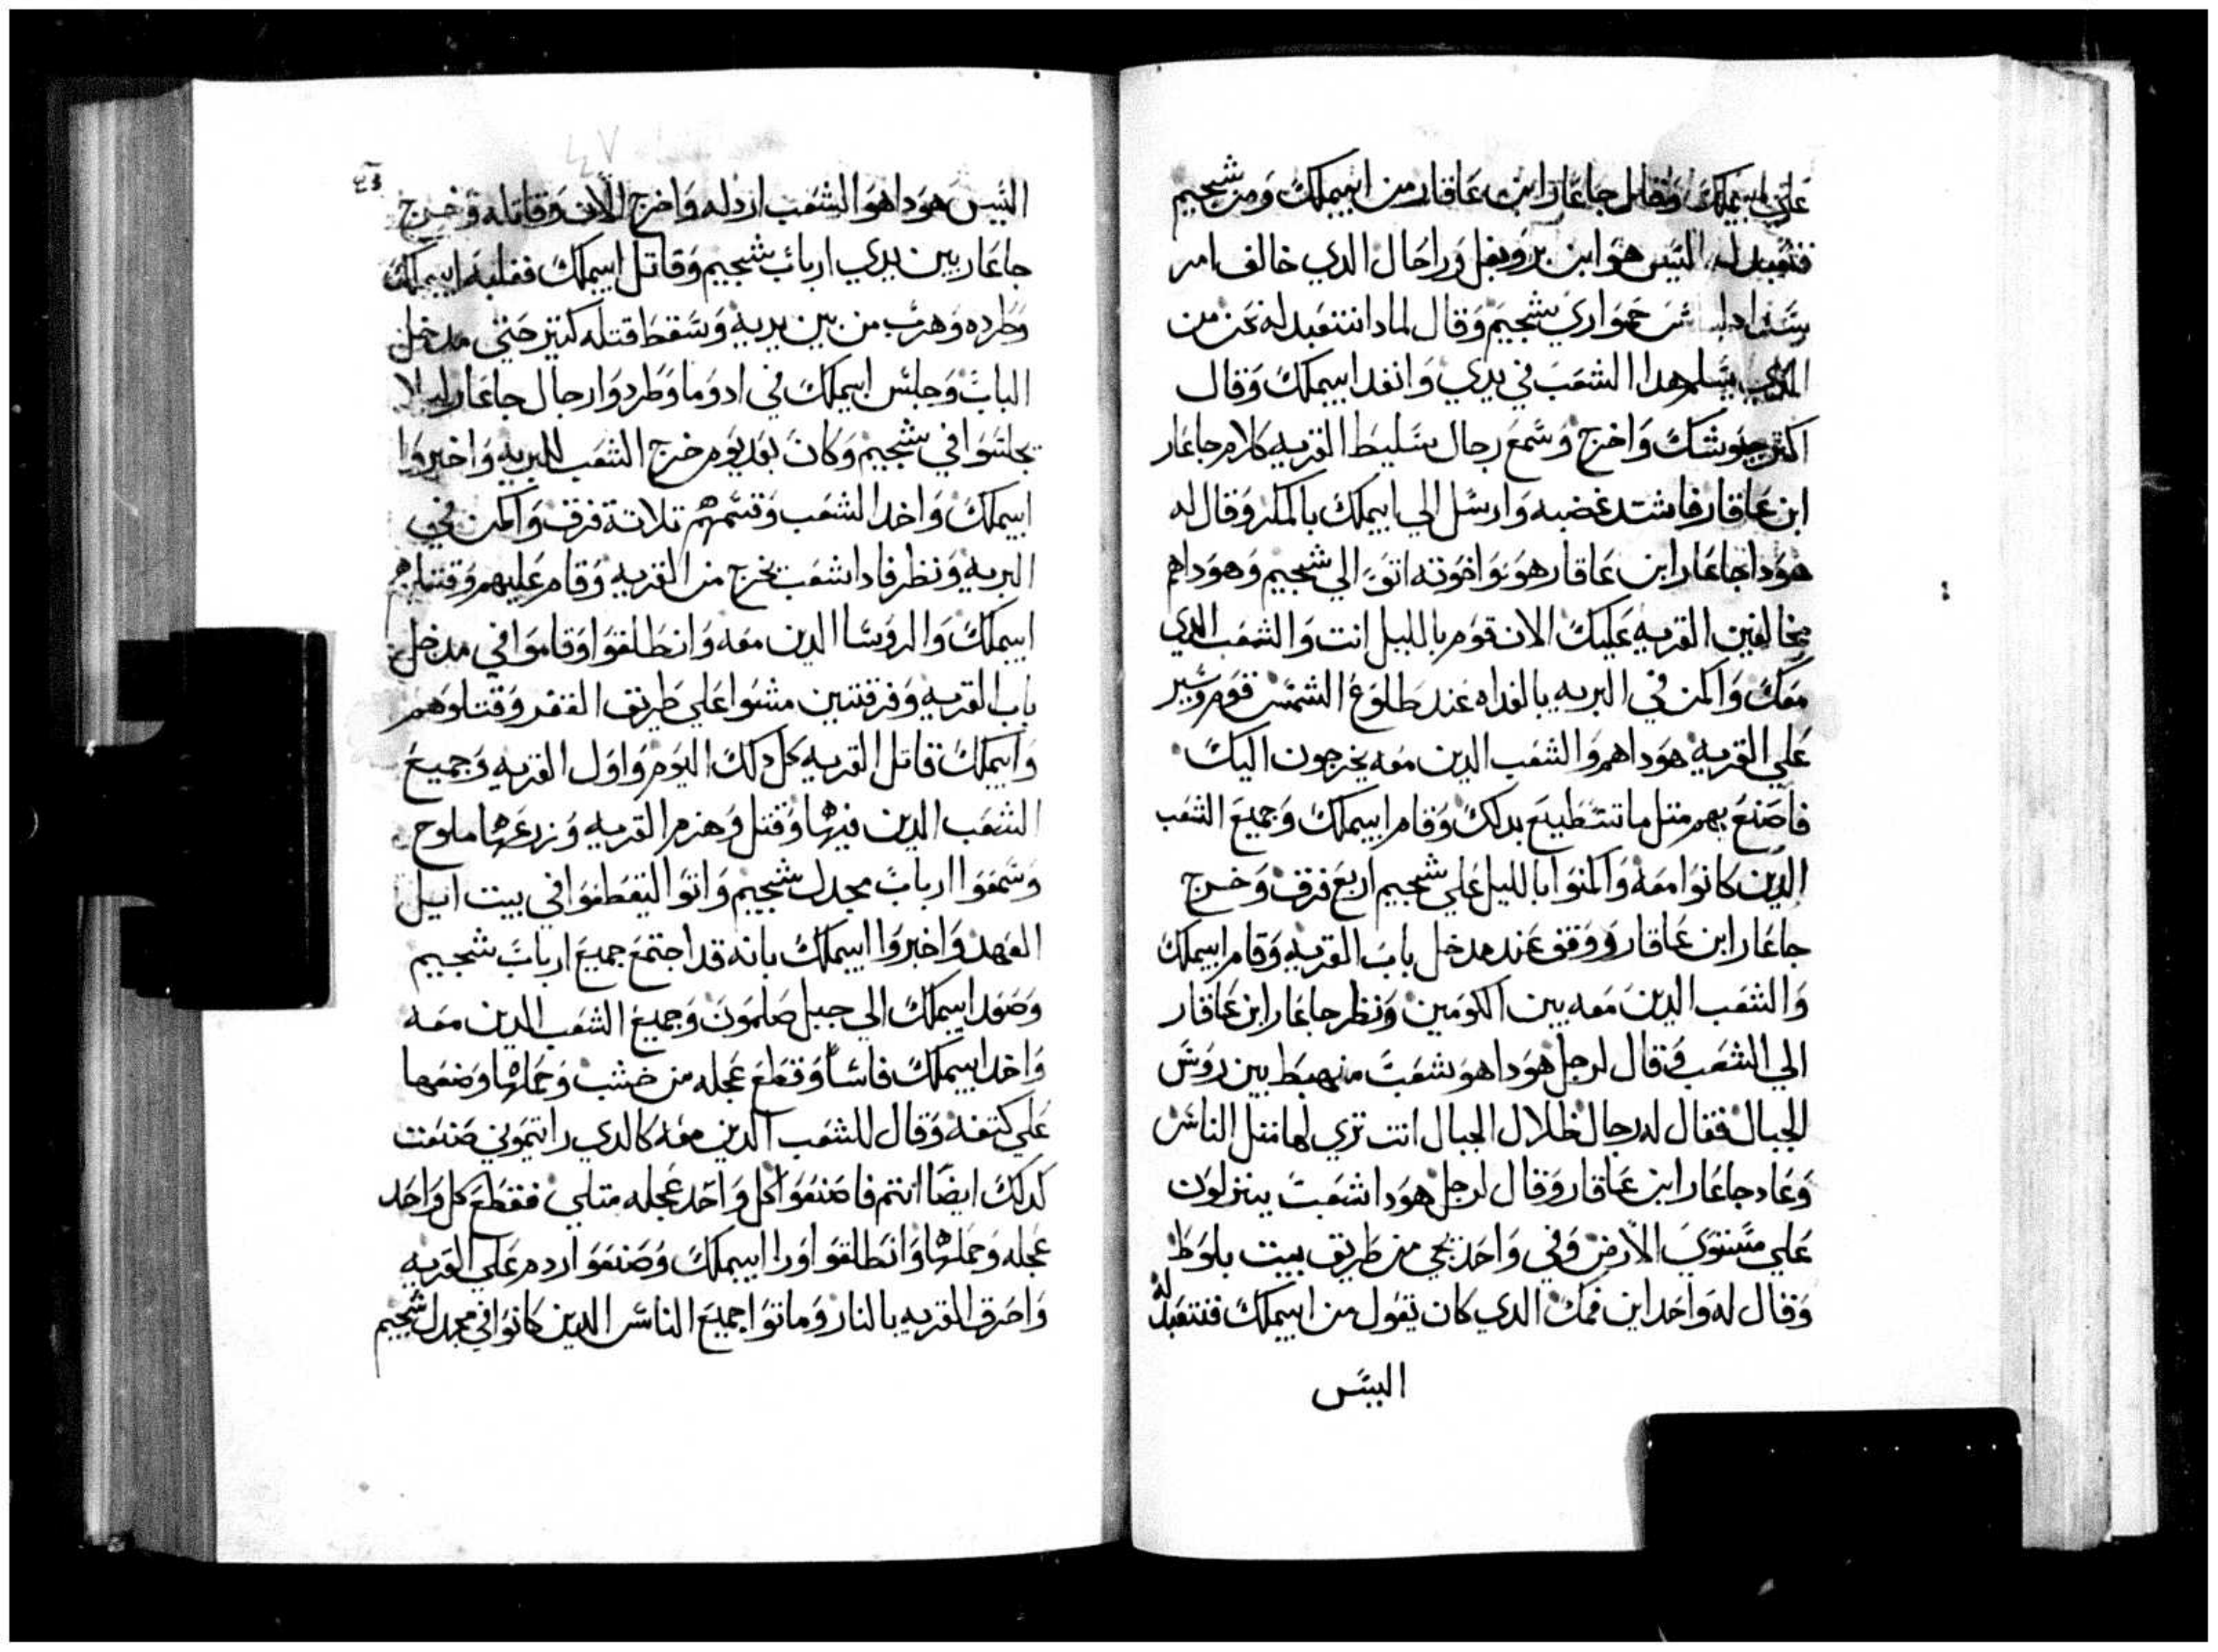 علي ابيملك وقال جاعار ابن عاقار من ابيملك ومن شجيم
فنتعبد له اليس هو ابن يروبعل وراحال الدي خالف امر
حمواري شجيم وقال لمادا نتعبد له نحن من
الدي يسلم هدا الشعب في يدي وانفد ابيملك وقال
اكتر جيوشك واخرج وسمع رجال سليط القريه كلام جاعار
ابن عاقار فاشتد غضبه وارسل الي ابيملك بالمكر وقال له
هودا جاعار ابن عاقار هو واخوته اتو الي شجيم وهوداهم
مخالفين القريه عليك الان قوم بالليل انت والشعب الدي
معك واكمن في البريه بالغداه عند طلوع الشمس قوم وسير
علي القريه هوداهم والشعب الدين معه يخرجون اليك
فاصنع بهم متل ما تستطيع بدلك وقام ابيملك وجميع الشعب
الدين كانوا معه واكمنوا بالليل علي شجيم اربع فرق وخرج
جاعار ابن عاقار ووقف عند مدخل باب القريه وقام ابيملك
والشعب الدين معه بين الكومين ونظر جاعار ابن عاقار
الي الشعب وقال لرجل هودا هو شعب منهبط بين روس
الجبال فقال له رجال ظلال الجبال انت تري لها متل الناس
وعاد جاعار ابن عاقار وقال لرجل هودا شعب ينزلون
علي مستوي الارض وفي واحد يجي من طريق بيت بلوط
وقال له واحد اين فمك الدي كان تقول من ابيملك فنتعبد له
اليس
٤٧
اليس هودا هو الشعب اردله واخرج الان وقاتله وخرج
جاعار بين يدي ارباب شجيم وقاتل ابيملك فغلبه ابيملك
وطرده وهرب من بين يديه وسقط قتله كتير حتي مدخل
الباب وجلس ابيملك في ادوما وطردوا رجال جاعار ليلا
يجلسوا في شجيم وكان بعد يوم خرج الشعب للبريه واخبروا
ابيملك واخد الشعب وقسمهم تلاتة فرق واكمن في
البريه ونظر فادا شعب يخرج من القريه وقام عليهم وقتلهم
ابيملك والروسا الدين معه وانطلقوا وقاموا في مدخل
باب القريه وفرقتين مشوا علي طريق القفر وقتلوهم
وابيملك قاتل القريه كل دلك اليوم واول القريه وجميع
الشعب الدين فيها وقتل وهزم القريه وزرعها ملوح
وسمعوا ارباب مجدل شجيم واتوا اليقطفوا في بيت ايل
العهد واخبروا ابيملك بانه قد اجتمع جميع ارباب شجيم
وصعد ابيملك الي جبل صلمون وجميع الشعب الدين معه
واخد ابيملك فاسا وقطع عجله من خشب وحملها وضعها
علي كتفه وقال للشعب الدين معه كالدي رايتموني صنعت
كدلك ايضا انتم فاصنعوا كل واحد عجله متلي فقطع كل واحد
عجله وحملها وانطلقوا ورا ابيملك وصنعوا ردم علي القريه
واحرق القريه بالنار وماتوا جميع الناس الدين كانوا في مجدل شجيم